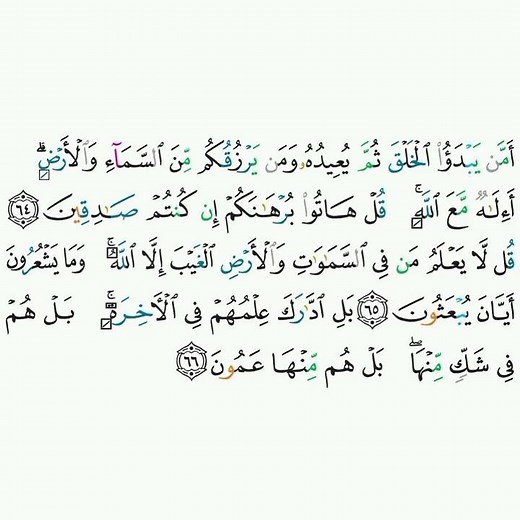 أَمَّن يَبْدَؤُا۟ الْخَلْقَ ثُمَّ يُعِيدُهُۥ وَمَن يَرْزُقُكُم مِّنَ السَّمَآءِ وَالْأَرْضِ ۗ
أَءِلَـٰهٌ مَّعَ اللَّهِ ۚ قُلْ هَاتُوا۟ بُرْهَـٰنَكُمْ إِن كُنتُمْ صَـٰدِقِينَ ﴿٦٤﴾
قُل لَّا يَعْلَمُ مَن فِى السَّمَـٰوَٰتِ وَالْأَرْضِ الْغَيْبَ إِلَّا اللَّهُ ۚ وَمَا يَشْعُرُونَ
أَيَّانَ يُبْعَثُونَ ﴿٦٥﴾ بَلِ ادَّٰرَكَ عِلْمُهُمْ فِى الْـَٔاخِرَةِ ۚ بَلْ هُمْ
فِى شَكٍّ مِّنْهَا ۖ بَلْ هُم مِّنْهَا عَمُونَ ﴿٦٦﴾